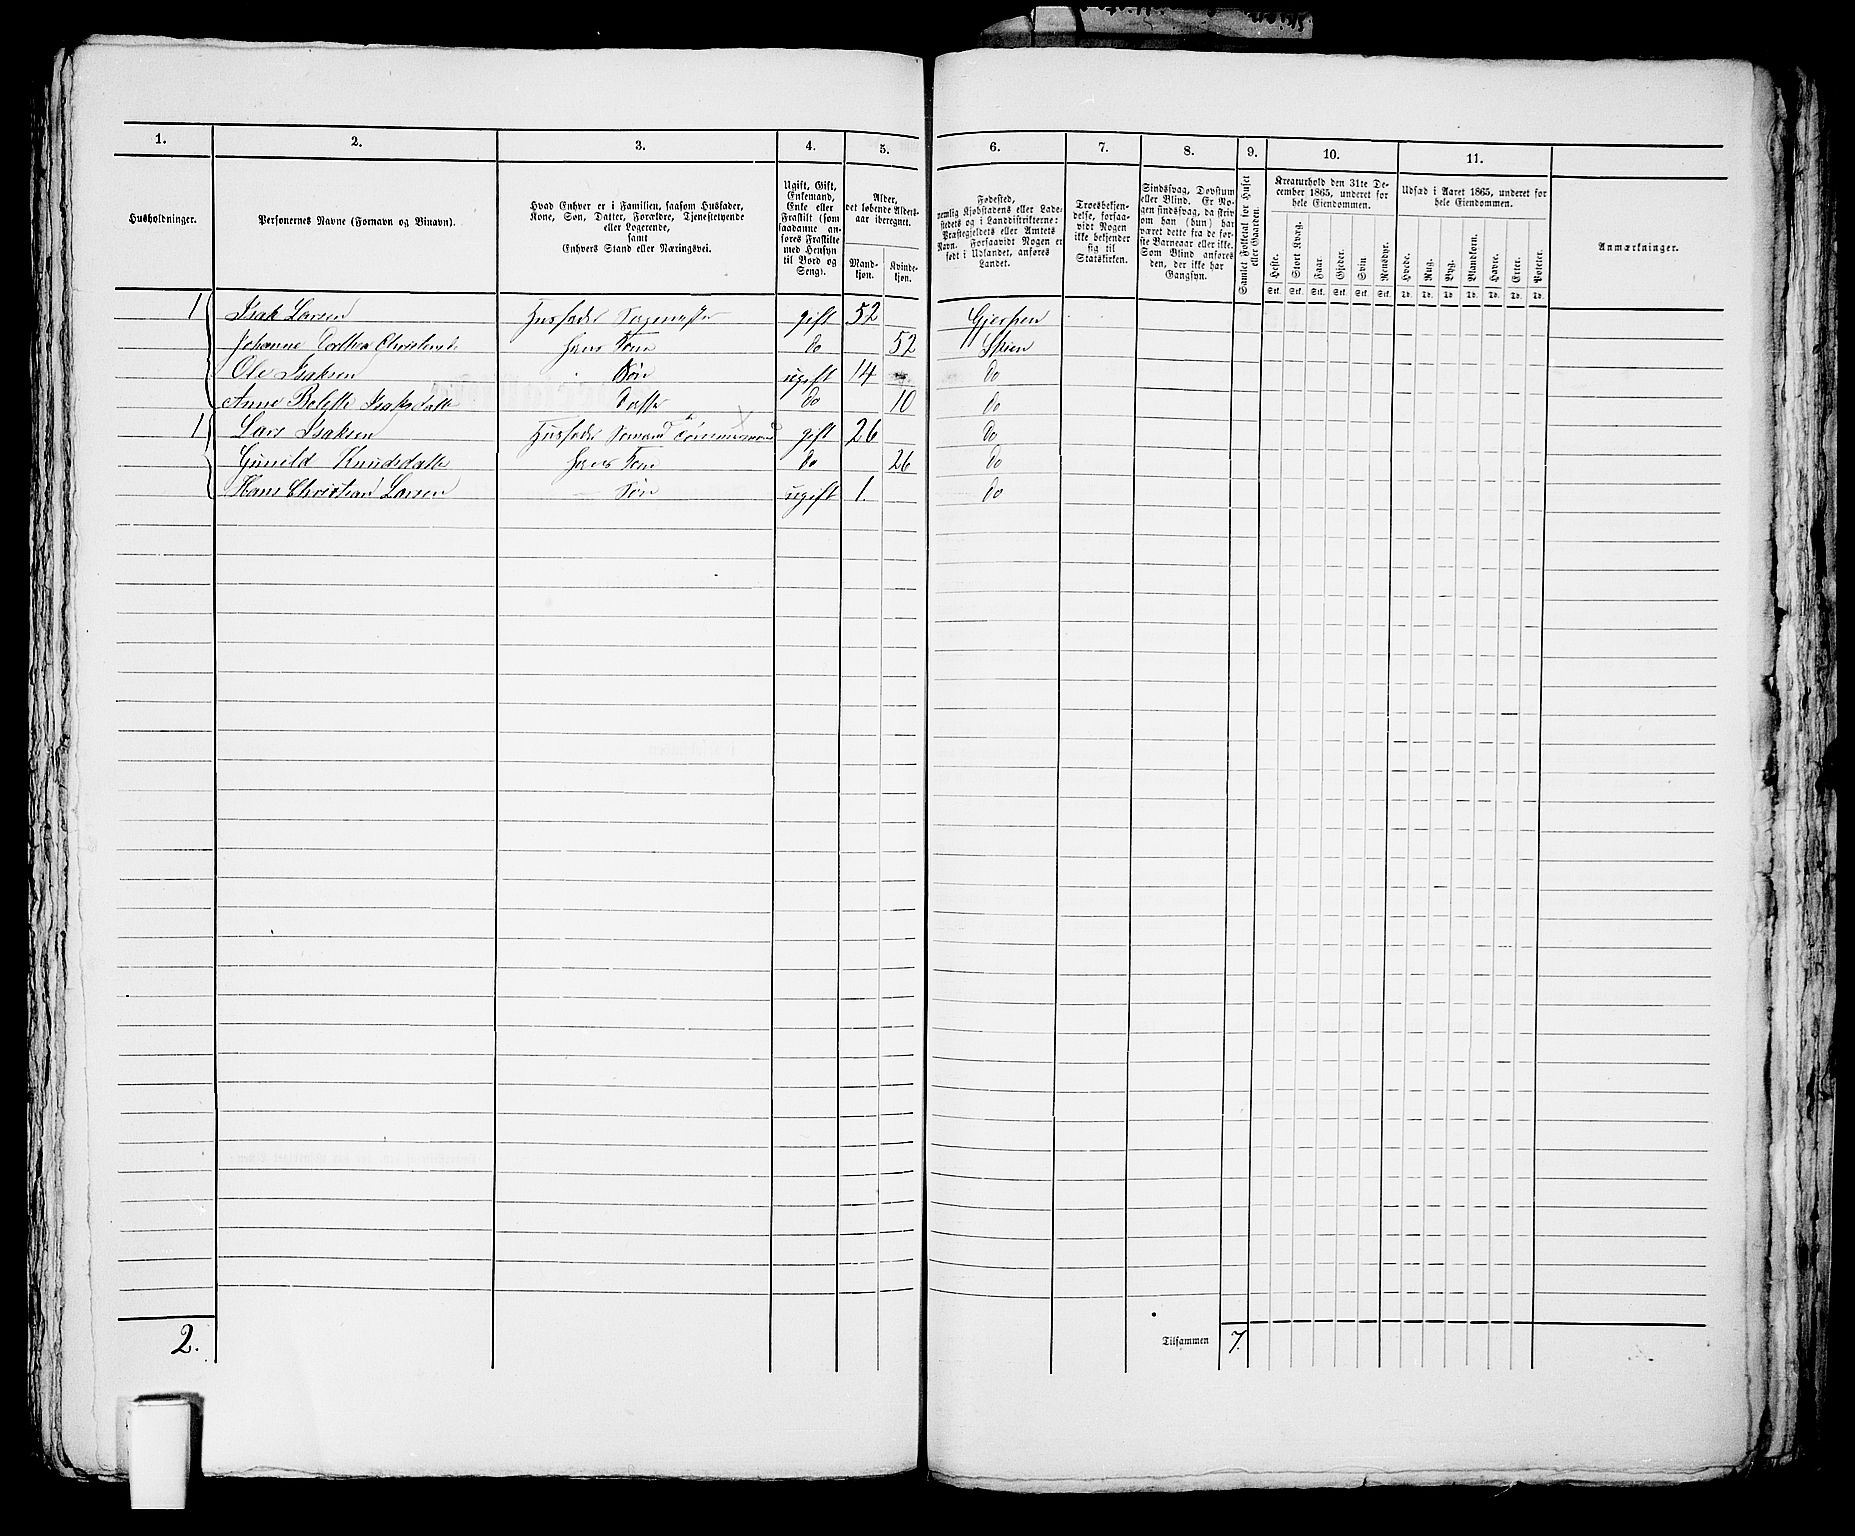 1. 2. 3. 4. 5. 6. 7. 8. 9. 10. 11.
Husholdninger.
Personernes Navne (Fornavn og Binavn).
Hvad Enhver er i Familien, saasom Husfader,
Kone, Søn, Datter, Forældre, Tjenestetyende
eller Logerende,
samt
Enhvers Stand eller Næringsvei.
Ugift, Gift,
Enkemand,
Enke eller
Fraskilt (som
saadanne an-
føres Fraskilte
med Hensyn
til Bord og
Seng).
Alder,
det løbende Alders-
aar iberegnet.
Mand-
kjøn.
Kvinde-
kjøn.
Fødested,
nemlig Kjøbstadens eller Lade-
stedets og i Landdistrikterne:
Præstegjeldets eller Amtets
Navn. Forsaavidt Nogen er
født i Udlandet, anføres
Landet.
Troesbekjen-
delse, forsaa-
vidt Nogen
ikke bekjender
sig til
Statskirken.
Sindssvag, Døvstum
eller Blind. Er No-
gen sindssvag, da skriv
om han (hun) har
været dette fra de før-
ste Barneaar eller ikke.
Som Blind anføres
den, der ikke har
Gangsyn.
Samlet Folketal for Huset
eller Gaarden.
Kreaturhold den 31te De-
cember 1865, underet for
hele Eiendommen.
Heste. Stort Kvæg. Faar. Gjeder. Svin. Rensdyr.
Stk. Stk. Stk. Stk. Stk. Stk.
Udsæd i Aaret 1865, underet for
hele Eiendommen.
Hvede. Rug. Byg. Blandkorn. Havre. Erter. Poteter.
Td. Td. Td. Td. Td. Td. Td.
Anmærkninger.
1 Isak Larsen Husfader gift 52 Gjerpen
Johanne Dorthea hans Kone do 52 Skien
Ole Isaksen Søn ugift 14 do
Anne Bolette Isaksdatte Datter do 10 do
1 Lars Isaksen Husfader Sømand Tømmermand gift 26 do
Gunild Knudsdatte hans Kone do 26 do
Hans Christian Larsen Søn ugift 1. do
2. Tilsammen 7.